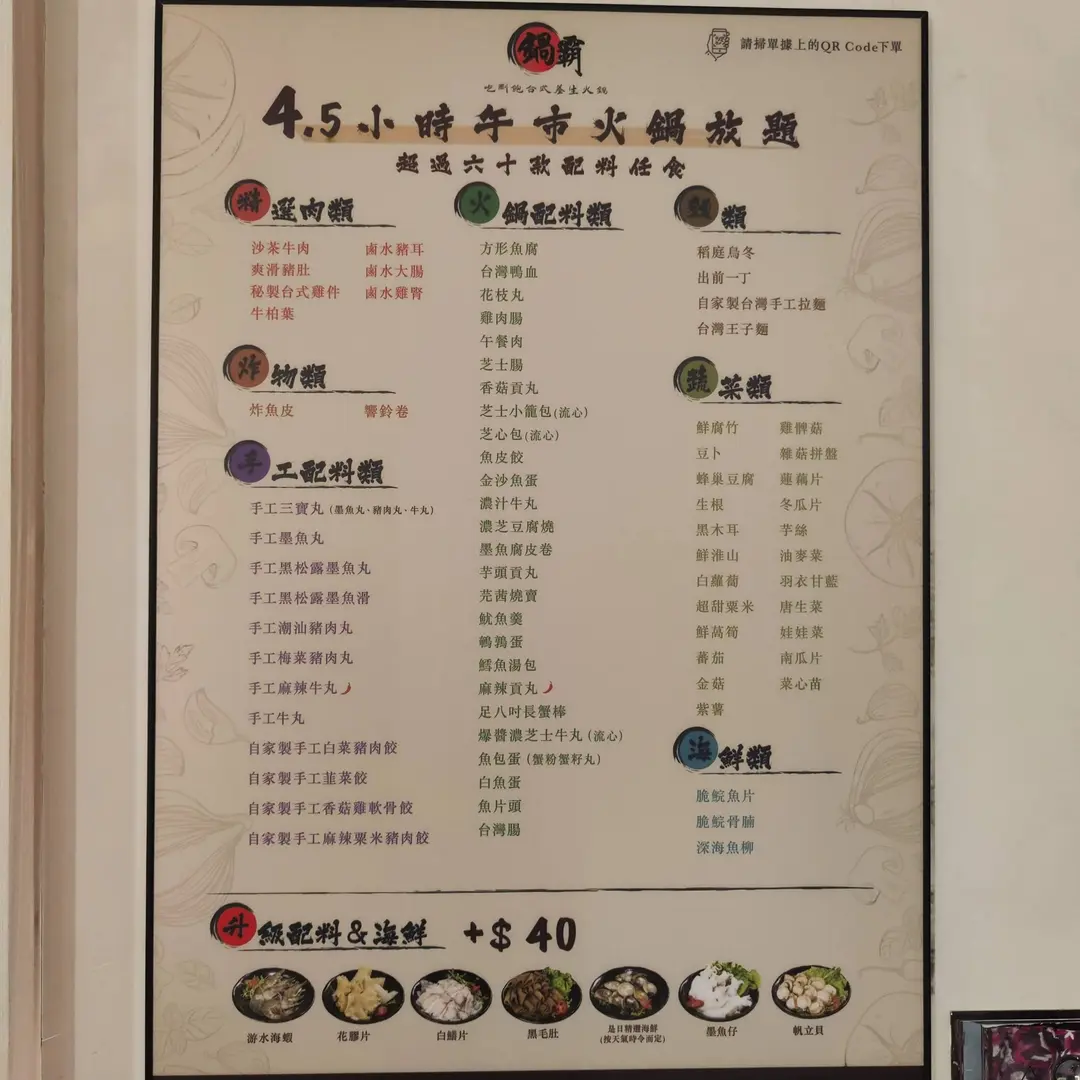 鍋霸
請掃單據上的QR Code下單
吃到飽台式養生火鍋
4.5小時午市火鍋放題
超過六十款配料任食
精選肉類
沙茶牛肉
爽滑豬肚
秘製台式雞件
牛柏葉
鹵水豬耳
鹵水大腸
鹵水雞腎
炸物類
炸魚皮
響鈴卷
手工配料類
手工三寶丸(墨魚丸、豬肉丸、牛丸)
手工墨魚丸
手工黑松露墨魚丸
手工黑松露墨魚滑
手工潮汕豬肉丸
手工梅菜豬肉丸
手工麻辣牛丸
手工牛丸
自家製手工白菜豬肉餃
自家製手工韮菜餃
自家製手工香菇雞軟骨餃
自家製手工麻辣粟米豬肉餃
火鍋配料類
方形魚腐
台灣鴨血
花枝丸
雞肉腸
午餐肉
芝士腸
香菇貢丸
芝士小籠包(流心)
芝心包(流心)
魚皮餃
金沙魚蛋
濃汁牛丸
濃芝豆腐燒
墨魚腐皮卷
芋頭貢丸
芫茜燒賣
魷魚羹
鵪鶉蛋
鱈魚湯包
麻辣貢丸
足八吋長蟹棒
爆醬濃芝士牛丸(流心)
魚包蛋(蟹粉蟹籽丸)
白魚蛋
魚片頭
台灣腸
麵類
稻庭烏冬
出前一丁
自家製台灣手工拉麵
台灣王子麵
蔬菜類
鮮腐竹
豆卜
蜂巢豆腐
生根
黑木耳
鮮淮山
白蘿蔔
超甜粟米
鮮萵筍
蕃茄
金菇
紫薯
雞髀菇
雜菇拼盤
蓮藕片
冬瓜片
芋絲
油麥菜
羽衣甘藍
唐生菜
娃娃菜
南瓜片
菜心苗
海鮮類
脆鯇魚片
脆鯇骨腩
深海魚柳
升級配料&海鮮 +$40
游水海蝦
花膠片
白鱔片
黑毛肚
是日精選海鮮
(按天氣時令而定)
墨魚仔
帆立貝